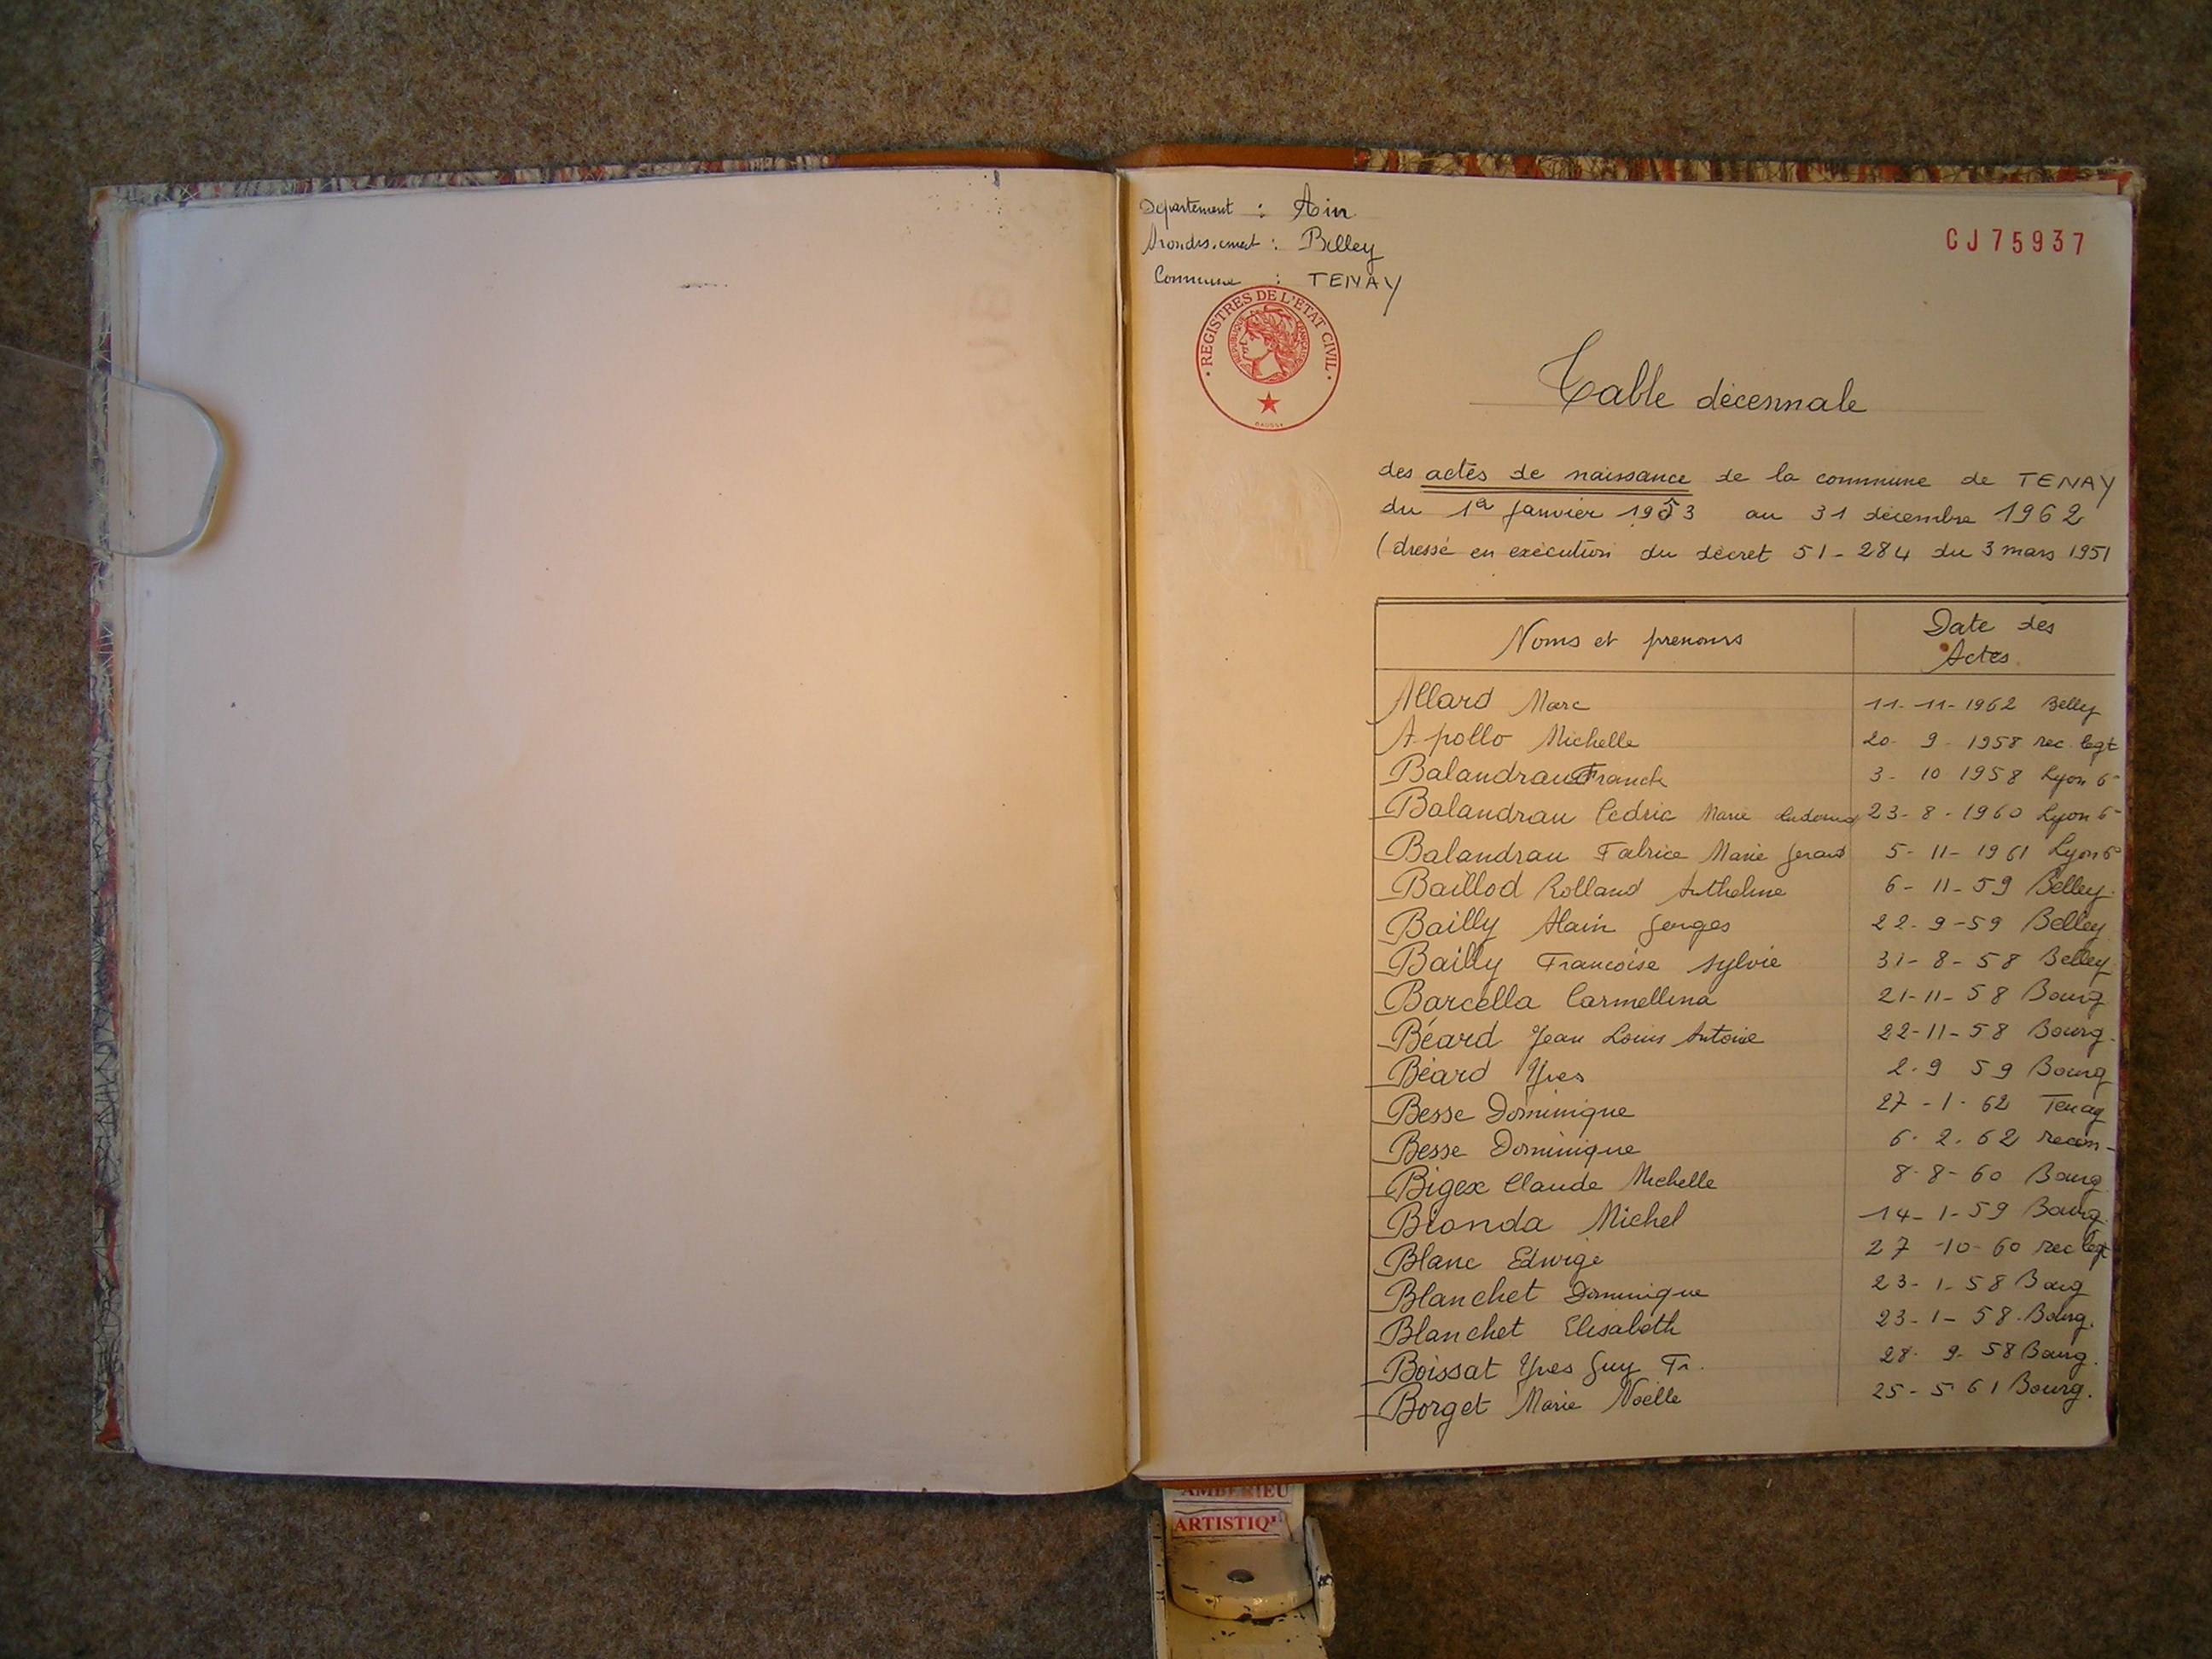 Departement : Ain
Arondissement : Belley
Commune : TENAY
CJ75937
REGISTRES DE L'ETAT CIVIL
REPUBLIQUE FRANÇAISE
Table décennale
des actes de naissance de la commune de TENAY
du 1er Janvier 1953 au 31 décembre 1962
(dressé en exécution du décret 51-284 du 3 mars 1951
Noms et prenoms Date des Actes
Allard Marc 11-11-1962 Belley
Apollo Michelle 20-9-1958 rec. legt
Balandrau Franck 3-10 1958 Lyon 6e
Balandrau Cedric Marie 23-8-1960 Lyon 6e
Balandrau Fabrice Marie Gerard 5-11-1961 Lyon 6e
Baillod Rolland Anthelme 6-11-59 Belley.
Bailly Alain Georges 22-9-59 Belley
Bailly Francoise Sylvie 31-8-58 Belley
Barcella Carmellina 21-11-58 Bourg
Béard Jean Louis Antoine 22-11-58 Bourg.
Béard Yves 2.9 59 Bourg
Besse Dominique 27-1-62 Tenay
Besse Dominique 6.2.62 recon-
Bigex Claude Michelle 8-8-60 Bourg
Bionda Michel 14-1-59 Bourg.
Blanc Edwige 27-10-60 rec legt
Blanchet Dominique 23-1-58 Bourg
Blanchet Elisabeth 23-1-58. Bourg.
Boissat Yves Guy Fr. 28-9-58 Bourg.
Borget Marie Noëlle 25-5 61 Bourg.
AMBERIEU
ARTISTIQU